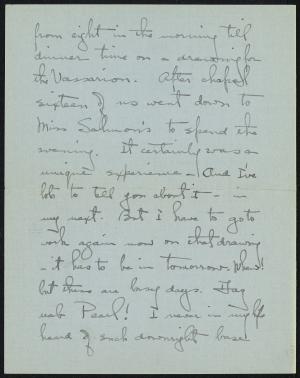 from eight in the morning till
dinner time on a drawing for
the Vassarion. After chapel
sixteen of us went down to
Miss Salmon's to spend the
evening. It certainly was a
unique experience - And I've
lots to tell you about it - in
my next. But I have to go to
work again now on that drawing
- it has to be in tomorrow. Whew!
but these are busy days.
Pearl! I never in my life
heard of such downright base